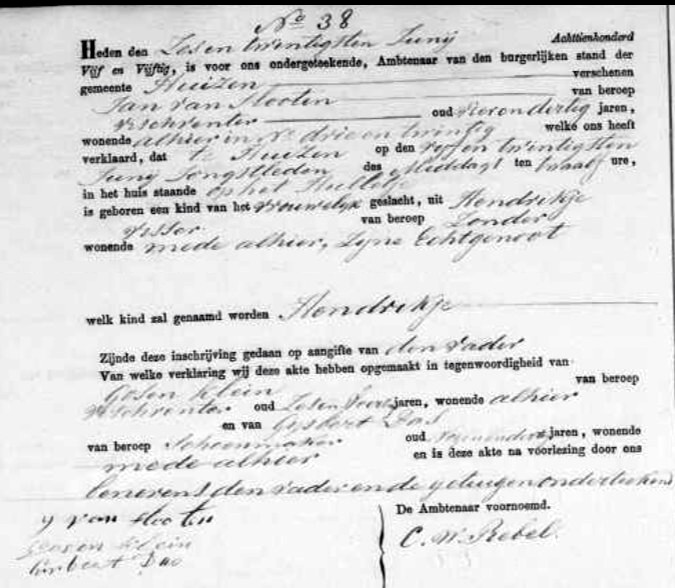 No 38
Heden den Zes en twintigsten Junij Achttienhonderd
Vijf en Vijftig, is voor ons ondergeteekende, Ambtenaar van den burgerlijken stand der
gemeente Huizen verschenen
Jan van Slooten van beroep
Vischventer oud vierendertig jaren,
wonende alhier in No drie en twintig welke ons heeft
verklaard, dat te Huizen op den vijf en twintigsten
Juny Jongstleden des Middags ten twaalf ure,
in het huis staande op het
is geboren een kind van het vrouwelijk geslacht, uit Hendrikje
Visser van beroep Zonder
wonende mede alhier, Zyne Echtgenoot
welk kind zal genaamd worden Hendrikje
Zijnde deze inschrijving gedaan op aangifte van den vader
Van welke verklaring wij deze akte hebben opgemaakt in tegenwoordigheid van
Gosen Klein van beroep
Vischventer oud Zes en jaren, wonende alhier
en van Gysbert Das
van beroep Schoenmaker oud jaren, wonende
mede alhier en is deze akte na voorlezing door ons
benevens den vader en de getuigen onderteekend
De Ambtenaar voornoemd.
J van Slooten
Goosen Klein
Das
C. W. Rebel.